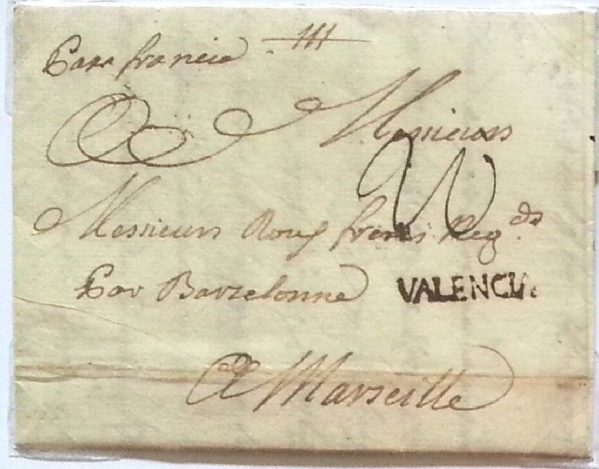 Para francia
A Messieurs
Messieurs Roux freres Neg.ds
Par Barzelonne VALENCIA
A Marseille